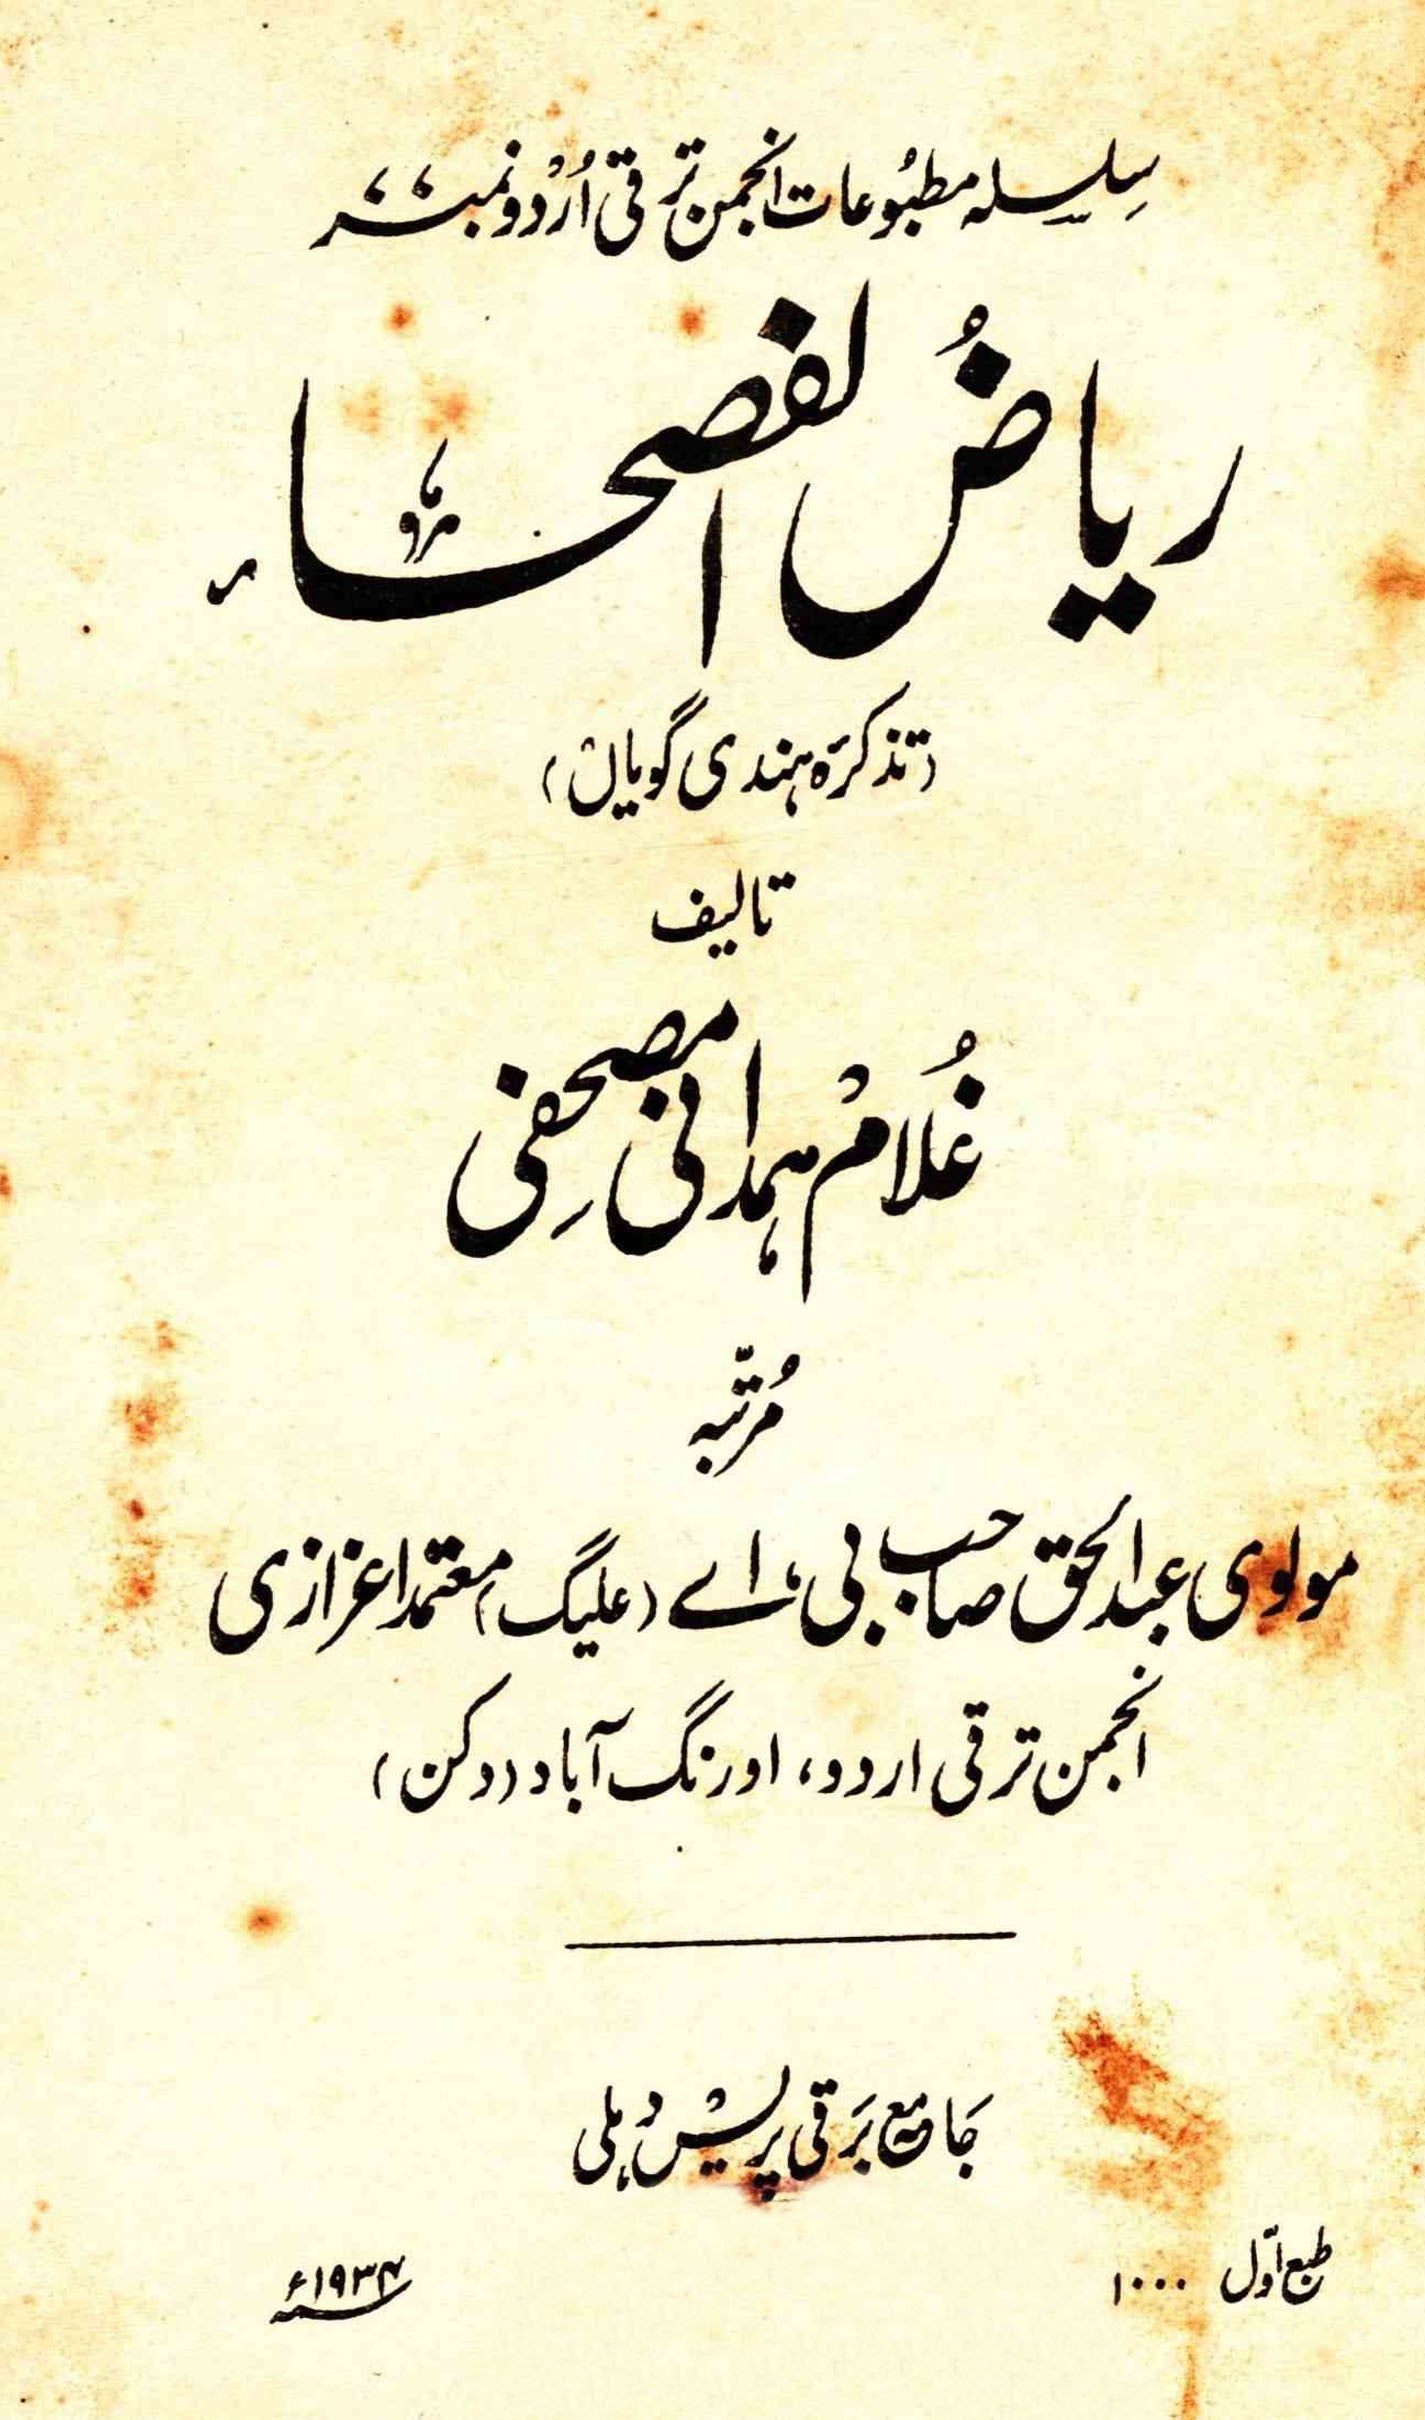 سِلسلہ مطبُوعات انجمن ترقی اُرْدو نمبر ۷۷
ریاضُ الفصحاء
(تذکرَہ ہندی گویانْ)
تالیف
غُلامْ ہمدانی مصحفِی
مُرتّبہ
مولوی عبدالحق صاحب بی، اے (علیگ) معتمد اعزازی
انجمن ترقی اردو، اورنگ آباد (دکن)
جَامع بَرقی پریسْ دہلی
طبع اوّل ۱۰۰۰
۱۹۳۴ء